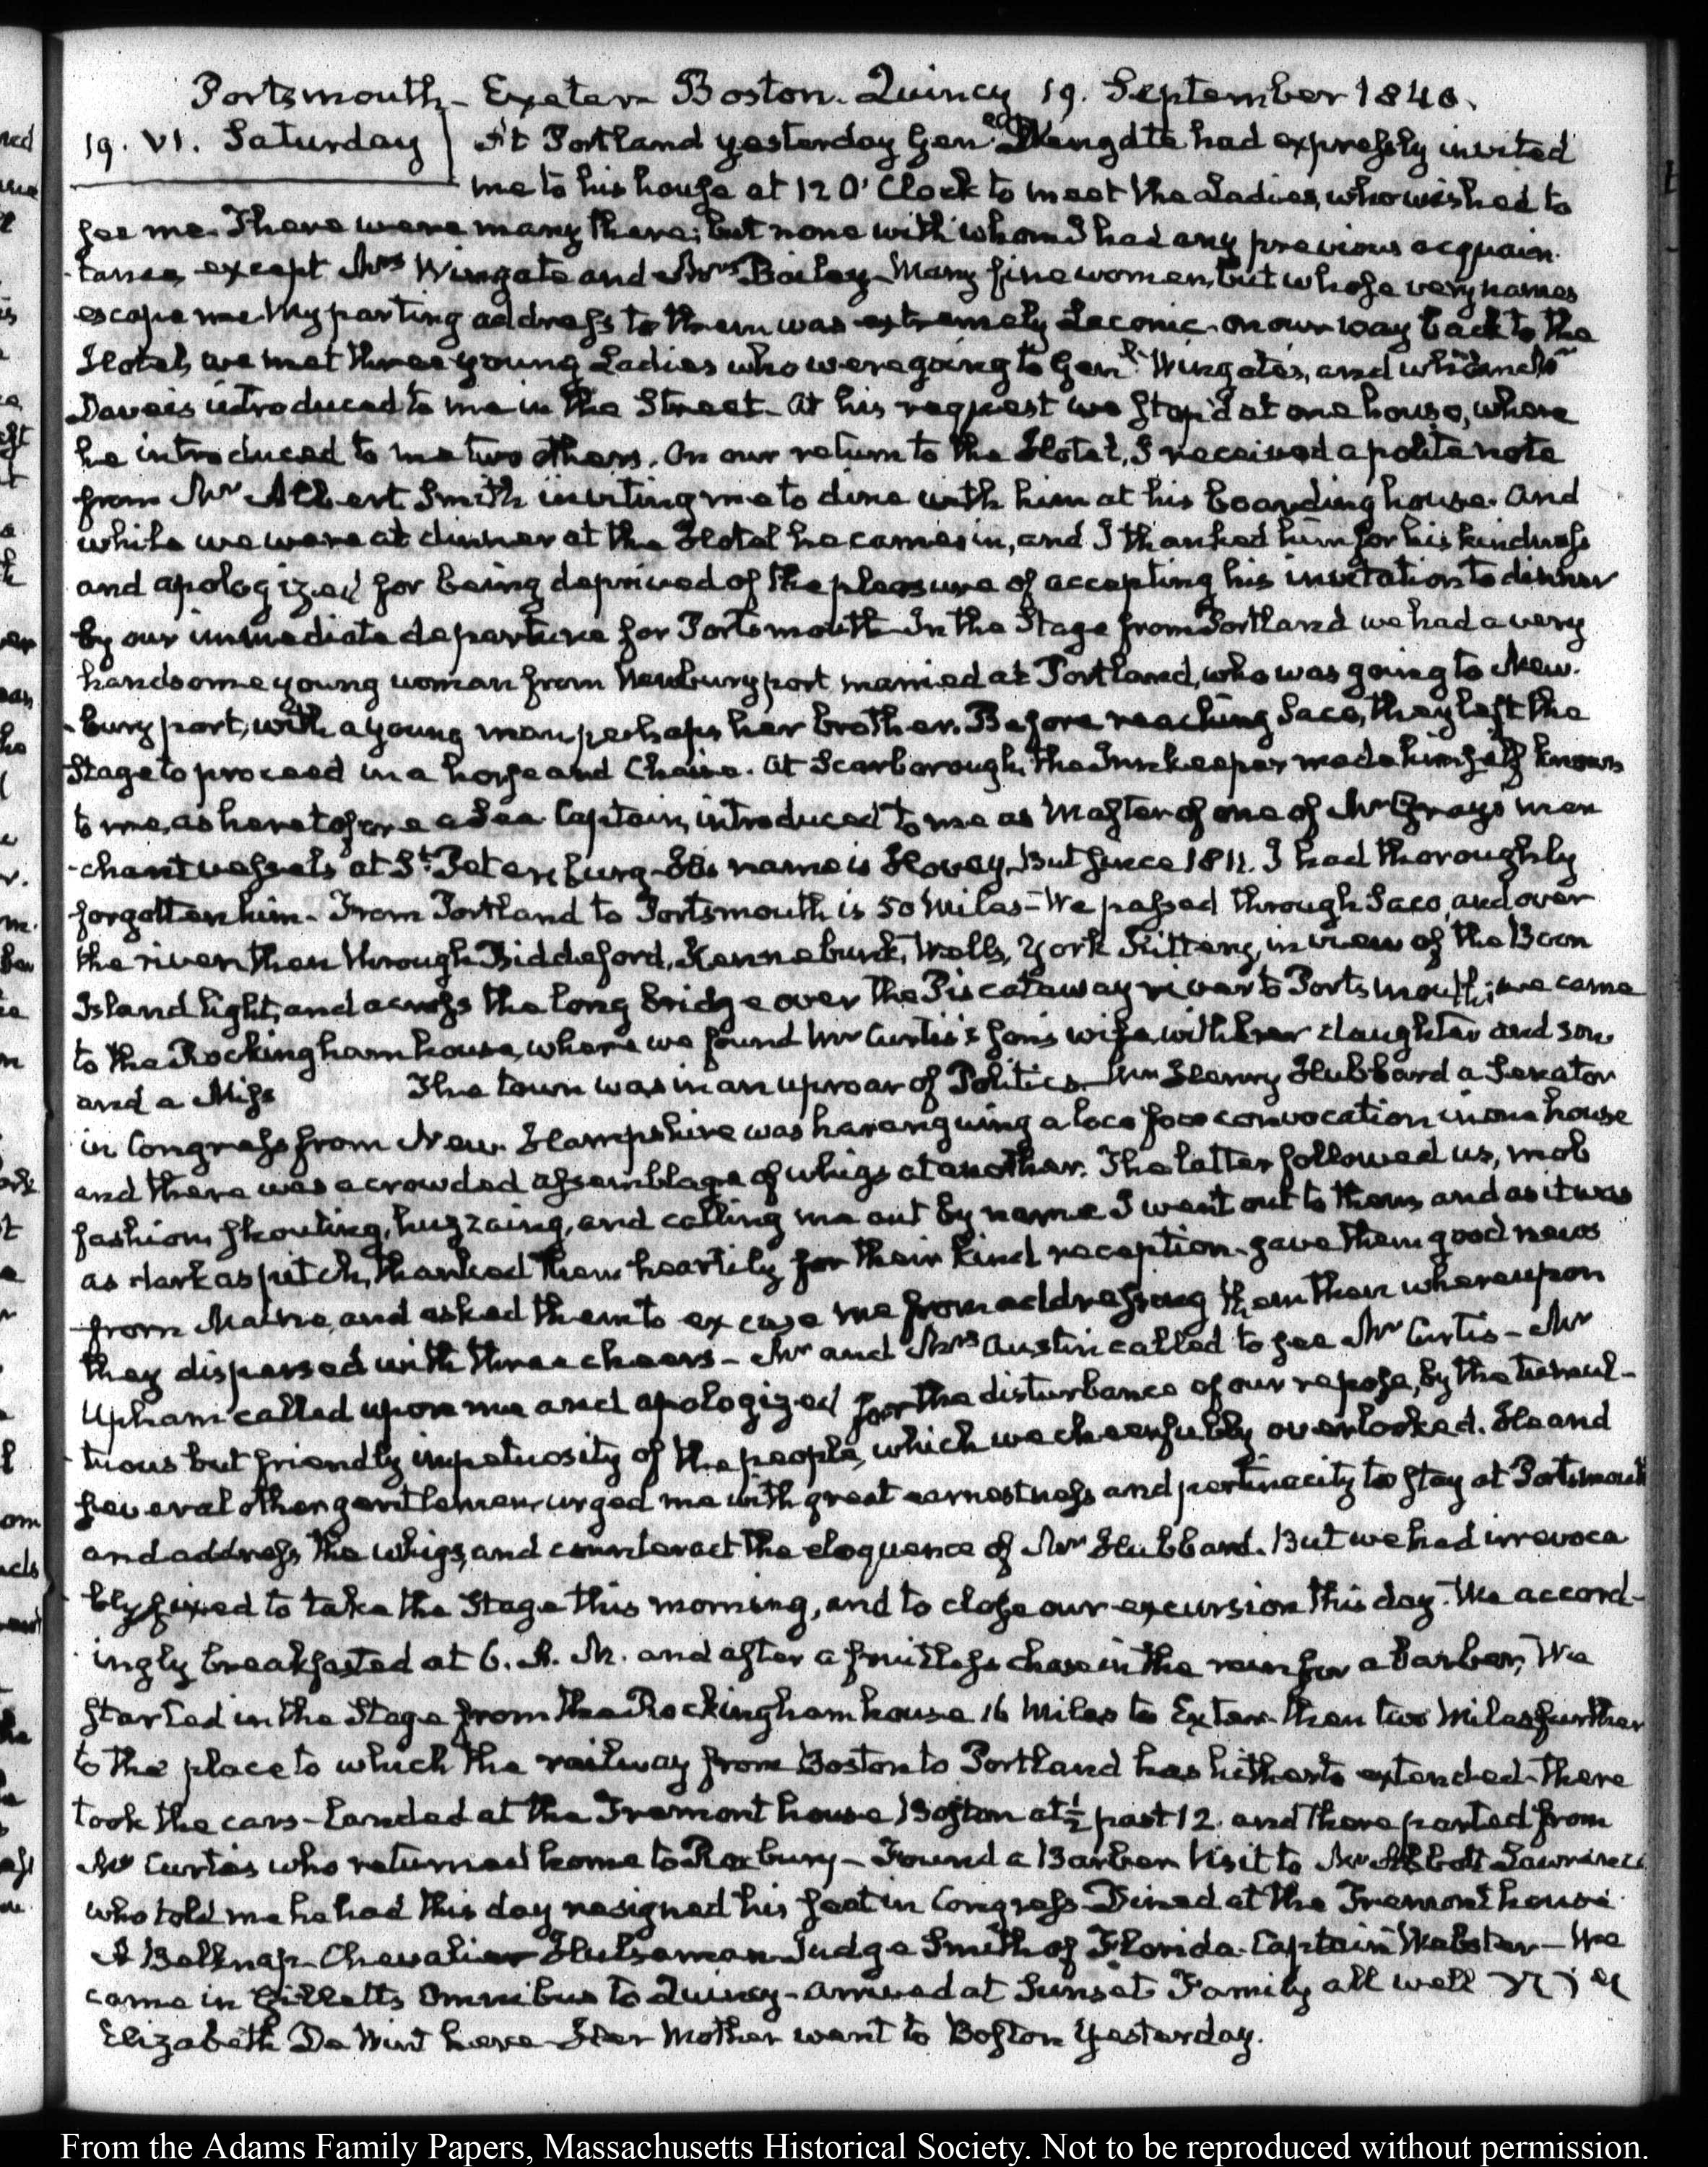 Portsmouth – Exeter – Boston. Quincy 19. September 1840.
19. VI. Saturday At Portland yesterday Genl. Wingate had expressly invited
me to his house at 12 O'Clock to meet the Ladies, who wished to
see me. There were many there; but none with whom I had any previous acquain-
tance, except Mrs Wingate and Mrs Bailey – Many fine women, but whose very names
escape me. My parting address to them was extremely Laconic – on our way back to the
Hotel, we met three young Ladies who were going to Genl. Wingate's, and whom Mr
Daveis introduced to me in the Street. At his request we stop'd at one house, where
he introduced to me two others. On our return to the Hotel, I received a polite note
from Mr Albert Smith inviting me to dine with him at his boarding house. And
while we were at dinner at the Hotel he came in, and I thanked him for his kindness
and apologized for being deprived of the pleasure of accepting his invitation to dinner
by our immediate departure for Portsmouth – In the Stage from Portland we had a very
handsome young woman from Newburyport married at Portland, who was going to New-
-bury port, with a young man perhaps her brother. Before reaching Saco, they left the
Stage to proceed in a horse and Chaise. At Scarborough, the Innkeeper made himself known
to me, as heretofore a Sea Captain, introduced to me as Master of one of Mr Grays mer
-chant vessels at St. Petersburg – His name is Hovey, But since 1811. I had thoroughly
forgotten him – From Portland to Portsmouth is 50 Miles – We passed through Saco, and over
the river then through Biddeford, Kennebunk, Wells, York Kittery, in view of the Boon
Island light, and across the long bridge over the Piscataway river to Portsmouth; we came
to the Rockingham house, where we found Mr Curtis's son's wife, with her daughter and son
and a Miss The town was in an uproar of Politics – Mr Henry Hubbard a Senator
in Congress from New-Hampshire was haranguing a loco foco convocation in one house
and there was a crowded assemblage of whigs at another. The latter followed us, mob
fashion, shouting, huzzaing, and calling me out by name I went out to them, and as it was
as dark as pitch, thanked them heartily for their kind reception – gave them good news
from Maine, and asked them to excuse me from addressing them then whereupon
they dispersed with three cheers – Mr and Mrs Austin called to see Mr Curtis – Mr
Upham called upon me and apologized for the disturbance of our repose, by the tumul-
-tuous but friendly impetuosity of the people, which we cheerfully overlooked. He and
several other gentlemen, urged me with great earnestness and pertinacity to stay at Portsmouth
and address the whigs, and counteract the eloquence of Mr Hubbard. But we had irrevoca
bly fixed to take the Stage this morning, and to close our excursion this day. We accord-
ingly breakfasted at 6. A. M. and after a fruitless chase in the rain for a Barber, We
started in the Stage from the Rockingham house 16 Miles to Exeter – then two Miles further
to the place to which the railway from Boston to Portland has hitherto extended – there
took the cars – Landed at the Tremont house Boston at ½ past 12. and there parted from
Mr Curtis who returned home to Roxbury – Found a Barber Visit to Mr Abbott Lawrence
who told me he had this day resigned his seat in Congress – Dined at the Tremont house
A Belknap – Chevalier Hulseman – Judge Smith of Florida – Captain Webster – We
came in Gilletts Omnibus to Quincy – arrived at Sunset Family all well
Elizabeth De Wint here – Her Mother went to Boston Yesterday.
From the Adams Family Papers, Massachusetts Historical Society. Not to be reproduced without permission.